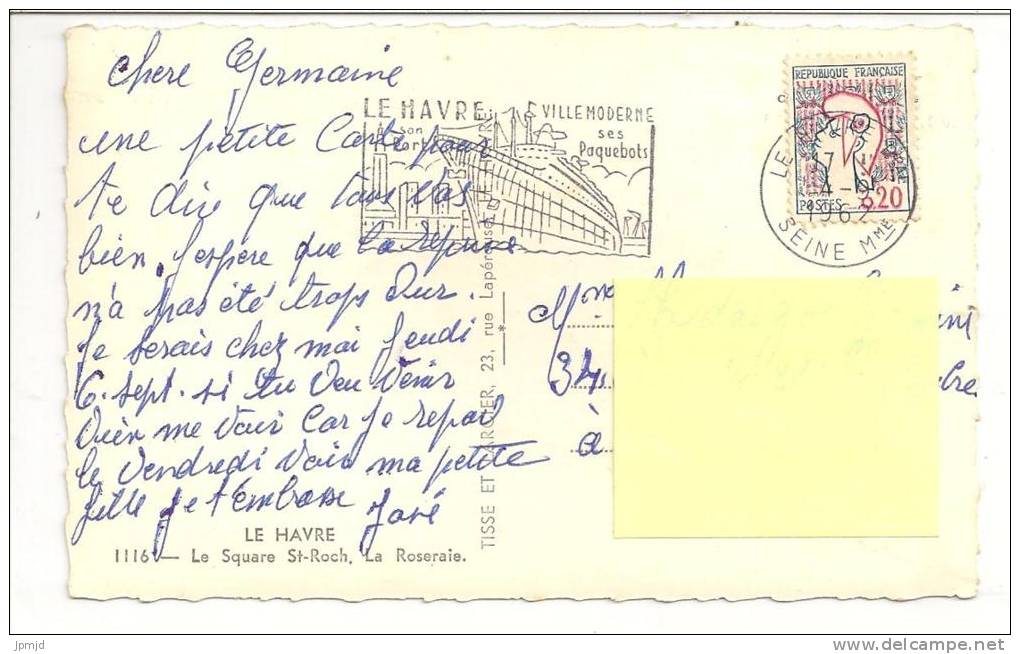 chere Germaine
une petite Carte pour
te dire que tous vas
bien J'espère que la reprise
n'a pas été trops dur.
Je serais chez moi Jeudi
6. sept. si tu veu venir
vien me voir car je repard
le vendredi voir ma petite
fille je t'embrasse José
LE HAVRE
1116 — Le Square St-Roch, La Roseraie.
LE HAVRE VILLE MODERNE
son Port ses Paquebots
TISSE ET VARGIER, 23, rue Lapérouse, LE HAVRE
REPUBLIQUE FRANÇAISE
POSTES 0,20
LE HAVRE
17 H
4-9
1962
SEINE MME
Mme
34
à
jpmjd
delcampe.net